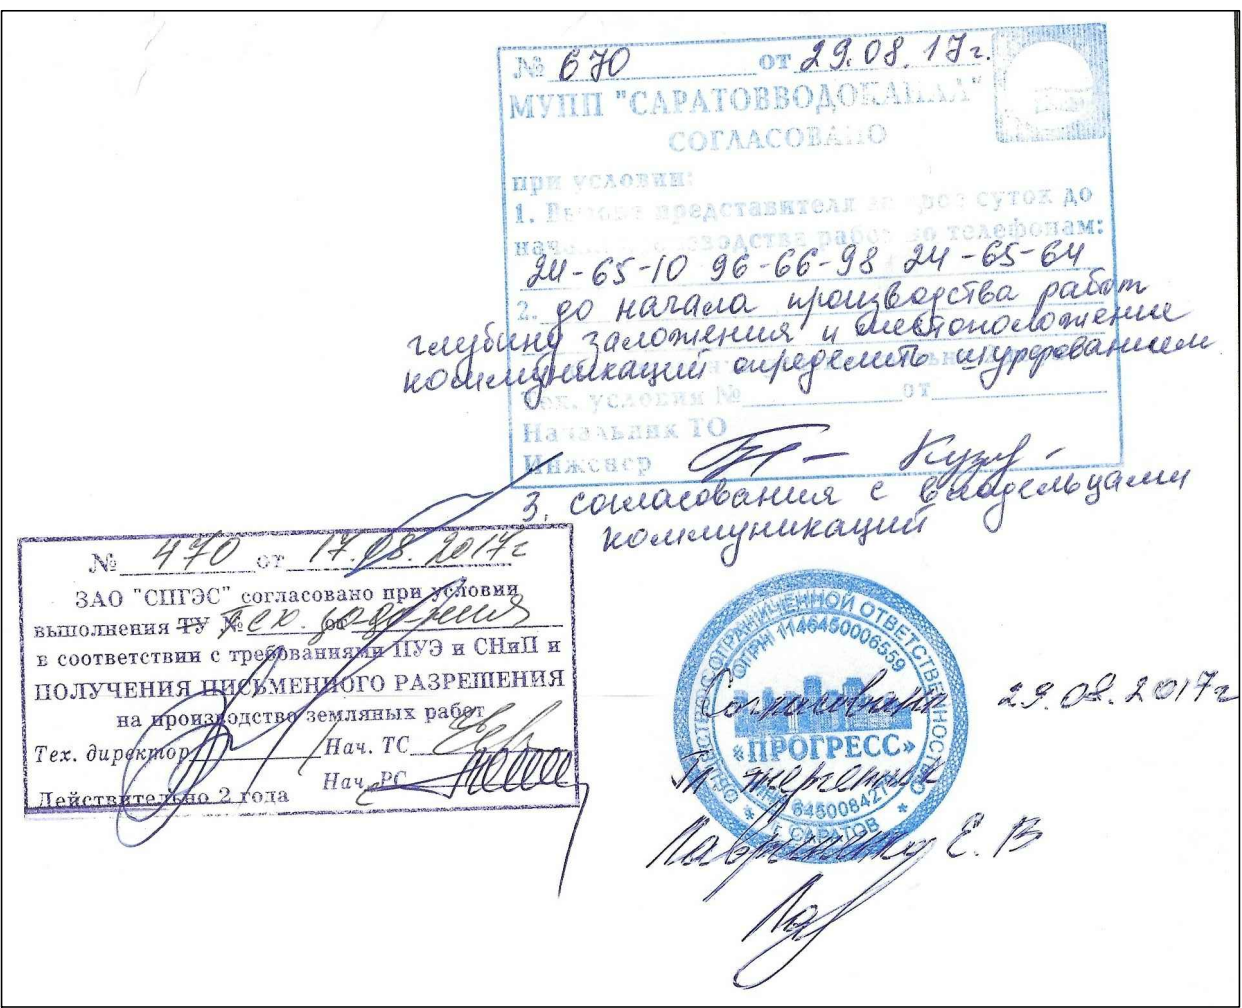 № 670 от 29.08.17г.
МУПП "САРАТОВВОДОКАНАЛ"
СОГЛАСОВАНО
при условии:
1. представителя суток до
производства работ по телефонам:
24-65-10 96-66-98 24-65-64
2. до начала производства работ
глубину заложения и местоположение
коммуникаций определить шурфованием
Тех. условия № от
Начальник ТО
Инженер
3. согласования с владельцами
коммуникаций
№ 470 от 17.08.2017г
ЗАО "СПГЭС" согласовано при условии
выполнения ТУ № Тех. задания от
в соответствии с требованиями ПУЭ и СНиП и
ПОЛУЧЕНИЯ ПИСЬМЕННОГО РАЗРЕШЕНИЯ
на производство земляных работ
Тех. директор Нач. ТС
Нач. РС
Действительно 2 года
ОБЩЕСТВО С ОГРАНИЧЕННОЙ ОТВЕТСТВЕННОСТЬЮ
ОГРН 1146450006559
«ПРОГРЕСС»
г. САРАТОВ
Согласовано 29.08.2017г
Гл энергетик
Лавриненко Е.В